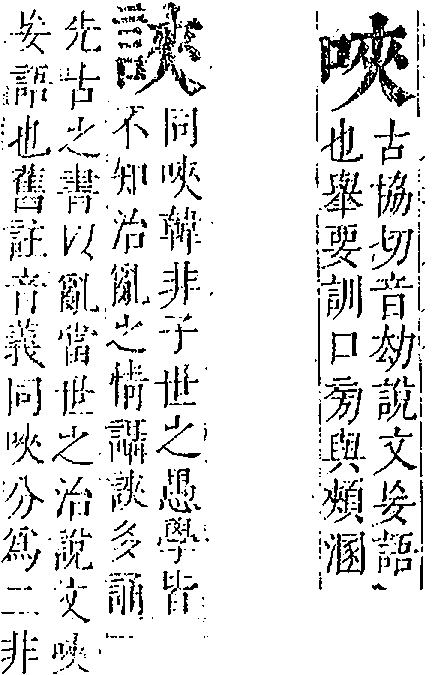 唊古協切音劫說文妄語
也舉要訓口旁與頰溷
𧧸同唊韓非子世之愚學皆
不知治亂之情讘𧧸多誦
先古之書以亂當世之治說文唊
妄語也舊註音義同唊分爲二非